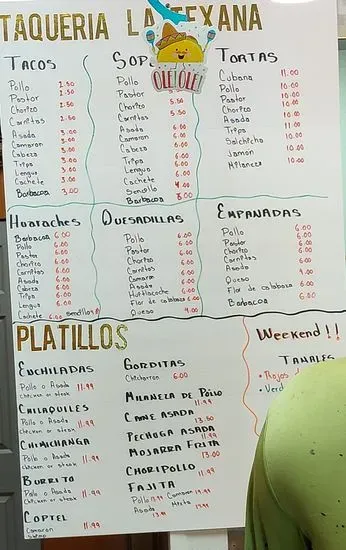 TAQUERIA LA TEXANA
OLE! OLE!
TACOS
Pollo 2.50
Pastor 2.50
Chorizo 2.50
Carnitas 2.50
Asada 3.00
Camaron 3.00
Cabeza 3.00
Tripa 3.00
Lengua 3.00
Cachete 3.00
Barbacoa 3.00
Pollo
Pastor
Chorizo 5.50
Carnitas 5.50
Asada 6.00
Camaron 6.00
Cabeza 6.00
Tripa 6.00
Lengua 6.00
Cachete 6.00
Sencillo 4.00
Barbacoa 6.00
TORTAS
Cubana 11.00
Pollo 10.00
Pastor 10.00
Chorizo 10.00
Asada 10.00
Tripa 11.00
Salchicha 10.00
Jamon 10.00
Milanesa 10.00
Huaraches
Barbacoa 6.00
Pollo 6.00
Pastor 6.00
Chorizo 6.00
Carnitas 6.00
Asada 6.00
Cabeza 6.00
Tripa 6.00
Lengua 6.00
Cachete 6.00 sencillos
QUESADILLAS
Pollo 6.00
Pastor 6.00
Chorizo 6.00
Carnitas 6.00
Camaron 6.00
Asada 6.00
Huitlacoche 6.00
Flor de calabaza 6.00
Queso 4.00
EMPANADAS
Pollo 6.00
Pastor 6.00
Chorizo 6.00
Carnitas 6.00
Asada 6.00
Queso 4.00
Flor de calabaza 6.00
Barbacoa 6.00
PLATILLOS
ENCHILADAS
Pollo o Asada 11.99
chicken or steak
CHILAQUILES
Pollo o Asada 11.99
chicken or steak
CHIMICHANGA
Pollo o Asada 11.99
chicken or steak
BURRITO
Pollo o Asada 11.99
chicken or steak
COPTEL 11.99
Camaron
shrimp
GORDITAS
Chicharron 6.00
MILANEZA DE POLLO
11.99
CARNE ASADA
13.50
PECHOGA ASADA
11.99
MOJARRA FRITA
13.00
CHORIPOLLO 11.99
FAJITA
Pollo 13.99 Camaron 14.99
Asada Mixta
Weekend!!
TAMALES
• Rojos
• Verd